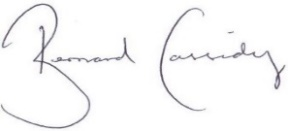 Bernard Cassidy